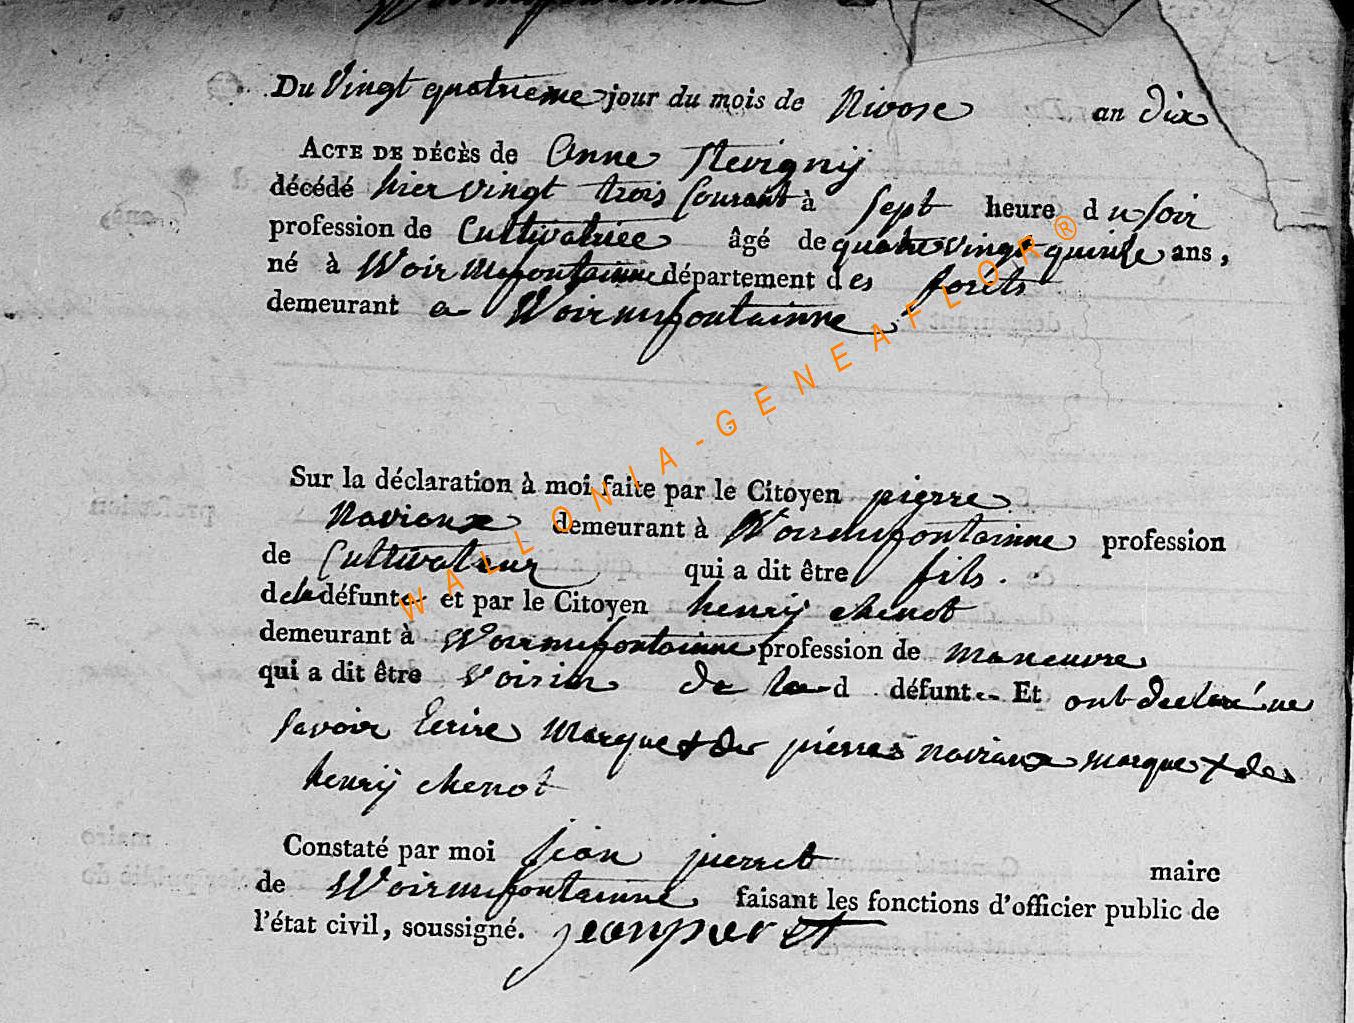 Du Vingt quatrieme jour du mois de Nivose an dix
ACTE DE DÉCÈS de Anne Stevignij
décédé hier vingt trois Courant à Sept heure du soir
profession de Cultivatrice âgé de quatre vingt quinze ans,
né à Woirmifontainne département des forêts
demeurant a Woirmifontainne
Sur la déclaration à moi faite par le Citoyen pierre
Naviaux demeurant à Woirmifontainne profession
de Cultivateur qui a dit être fils
de la défunte et par le Citoyen henrij chenot
demeurant à Woirmifontainne profession de maneuvre
qui a dit être voisin de la d défunte Et ont declaré ne
savoir Ecrire Marque + de pierre naviaux marque + de
henrij chenot
Constaté par moi jean pierret maire
de Woirmifontainne faisant les fonctions d'officier public de
l'état civil, soussigné. jean pierret
WALLONIA-GENEAFLOR®